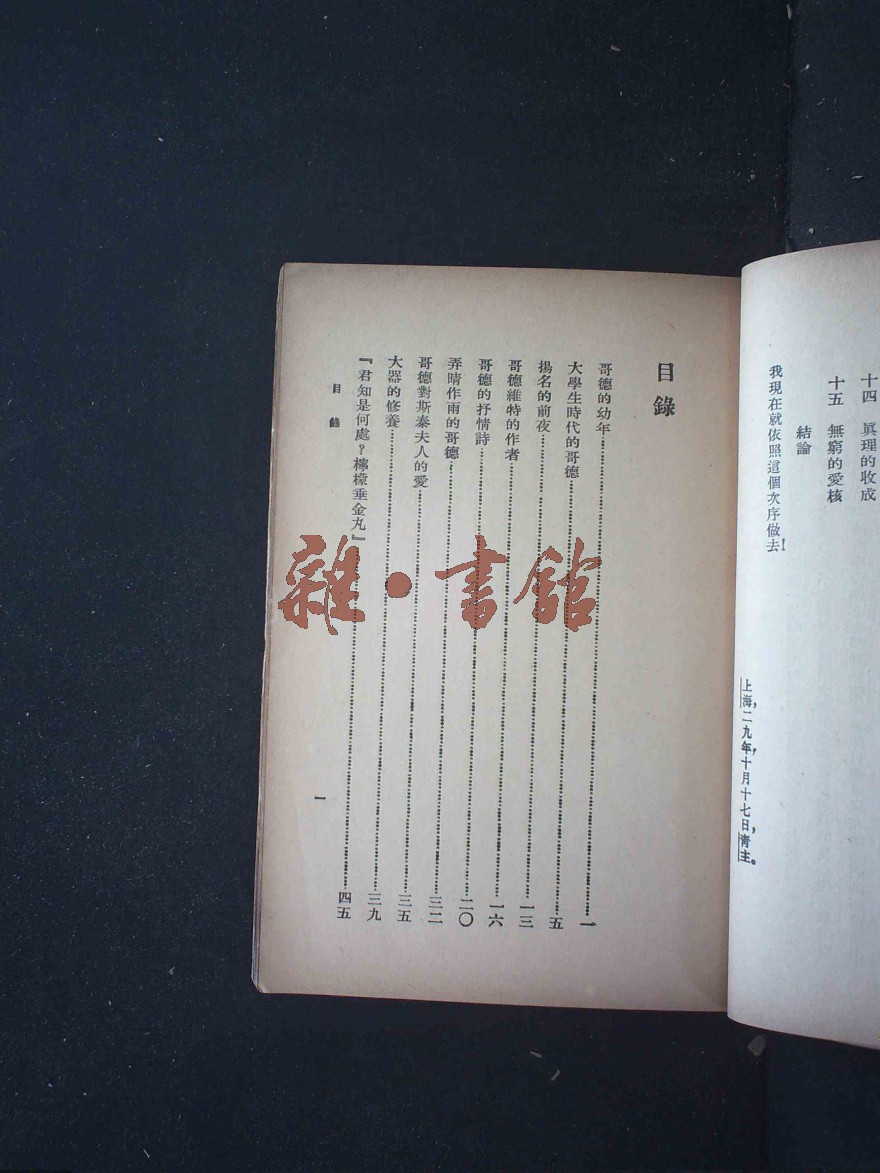 十四　眞理的收成
十五　無窮的愛核
結論
我現在就依照這個次序做去！
上海，二九年，十月十七日，青主。
目錄
哥德的幼年……一
大學生時代的哥德……五
揚名的前夜……一三
哥德維特的作者……一六
哥德的抒情詩……二〇
弄晴作雨的哥德……三二
哥德對斯泰夫人的愛……三五
大器的修養……三九
『君知是何處？檸檬垂金丸』……四五
目錄
一
雜·書館